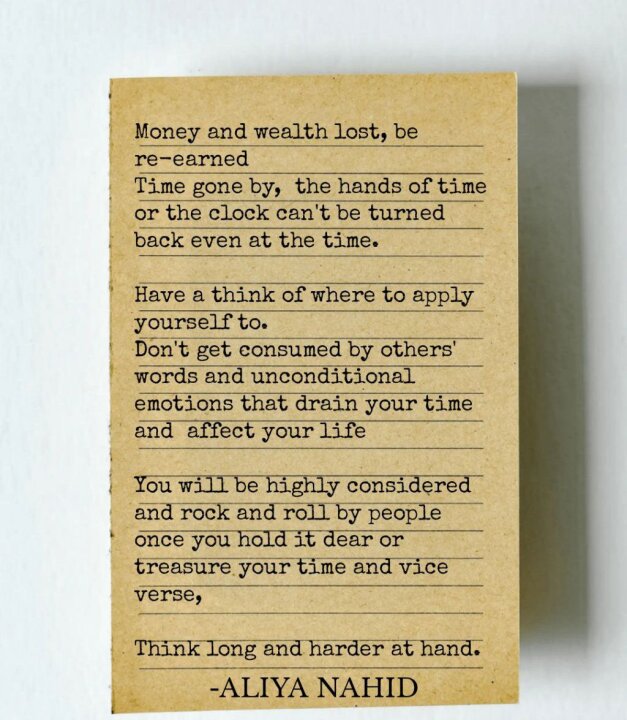 Money and wealth lost, be
re-earned
Time gone by, the hands of time
or the clock can't be turned
back even at the time.
Have a think of where to apply
yourself to.
Don't get consumed by others'
words and unconditional
emotions that drain your time
and affect your life
You will be highly considered
and rock and roll by people
once you hold it dear or
treasure your time and vice
verse,
Think long and harder at hand.
-ALIYA NAHID